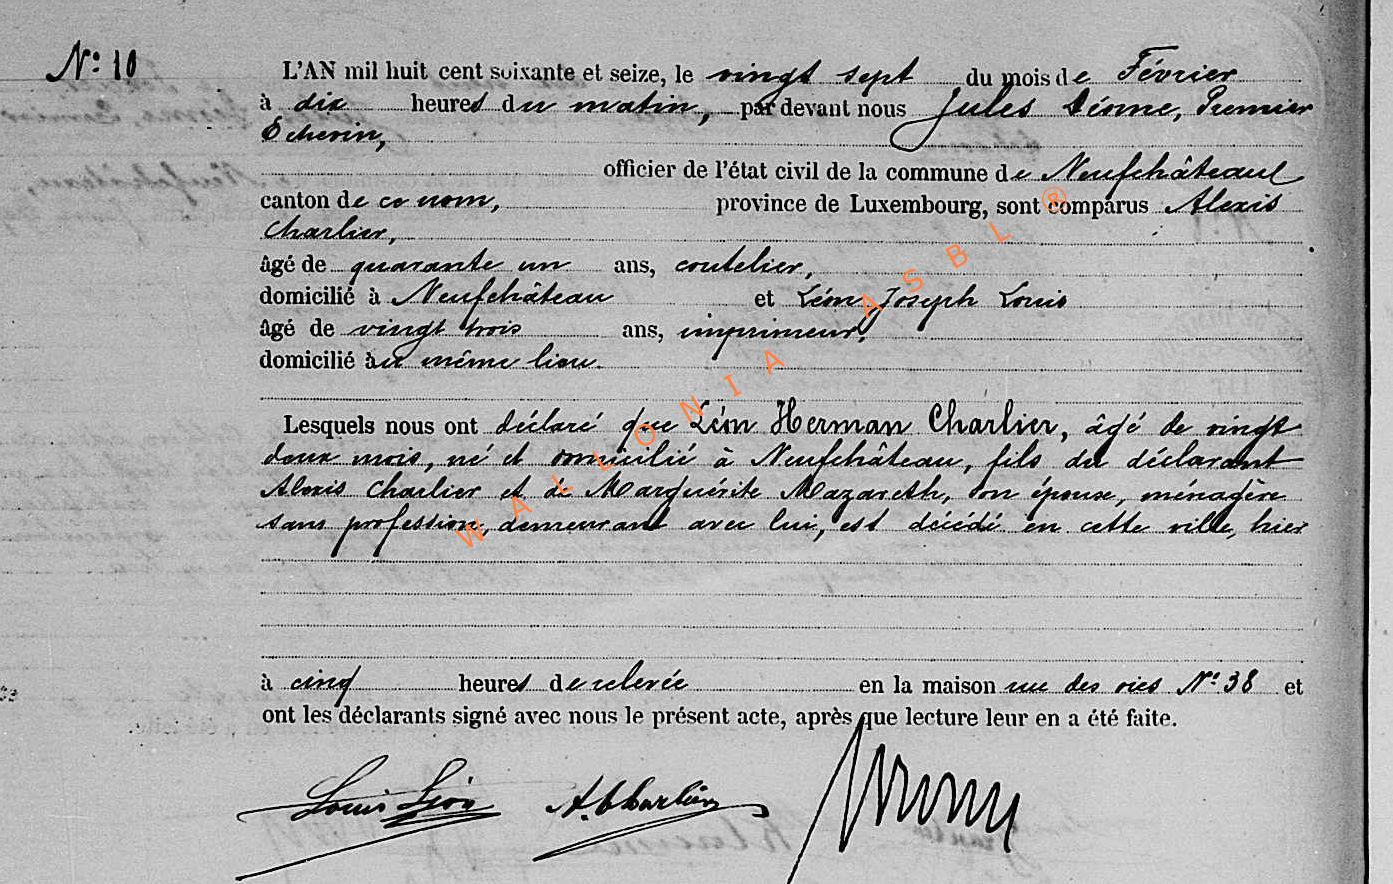 Nº 10
L'AN mil huit cent soixante et seize, le vingt sept du mois de Février
à dix heures du matin, par devant nous Jules Premier
Echevin,
officier de l'état civil de la commune de Neufchâteau
canton de ce nom, province de Luxembourg, sont comparus Alexis
Charlier,
âgé de quarante un ans, coutelier,
domicilié à Neufchâteau et Léon Joseph Louis
âgé de vingt trois ans, imprimeur,
domicilié au même lieu.
Lesquels nous ont déclaré que Léon Herman Charlier, âgé de vingt
deux mois, né et domicilié à Neufchâteau, fils du déclarant
Alexis Charlier et de Marguérite Mazareth, son épouse, ménagère
sans profession, demeurant avec lui, est décédé en cette ville, hier
à cinq heures de relevée en la maison rue des Nº 38 et
ont les déclarants signé avec nous le présent acte, après que lecture leur en a été faite.
Louis Léon A. Charlier
WALLONIA ASBL ®